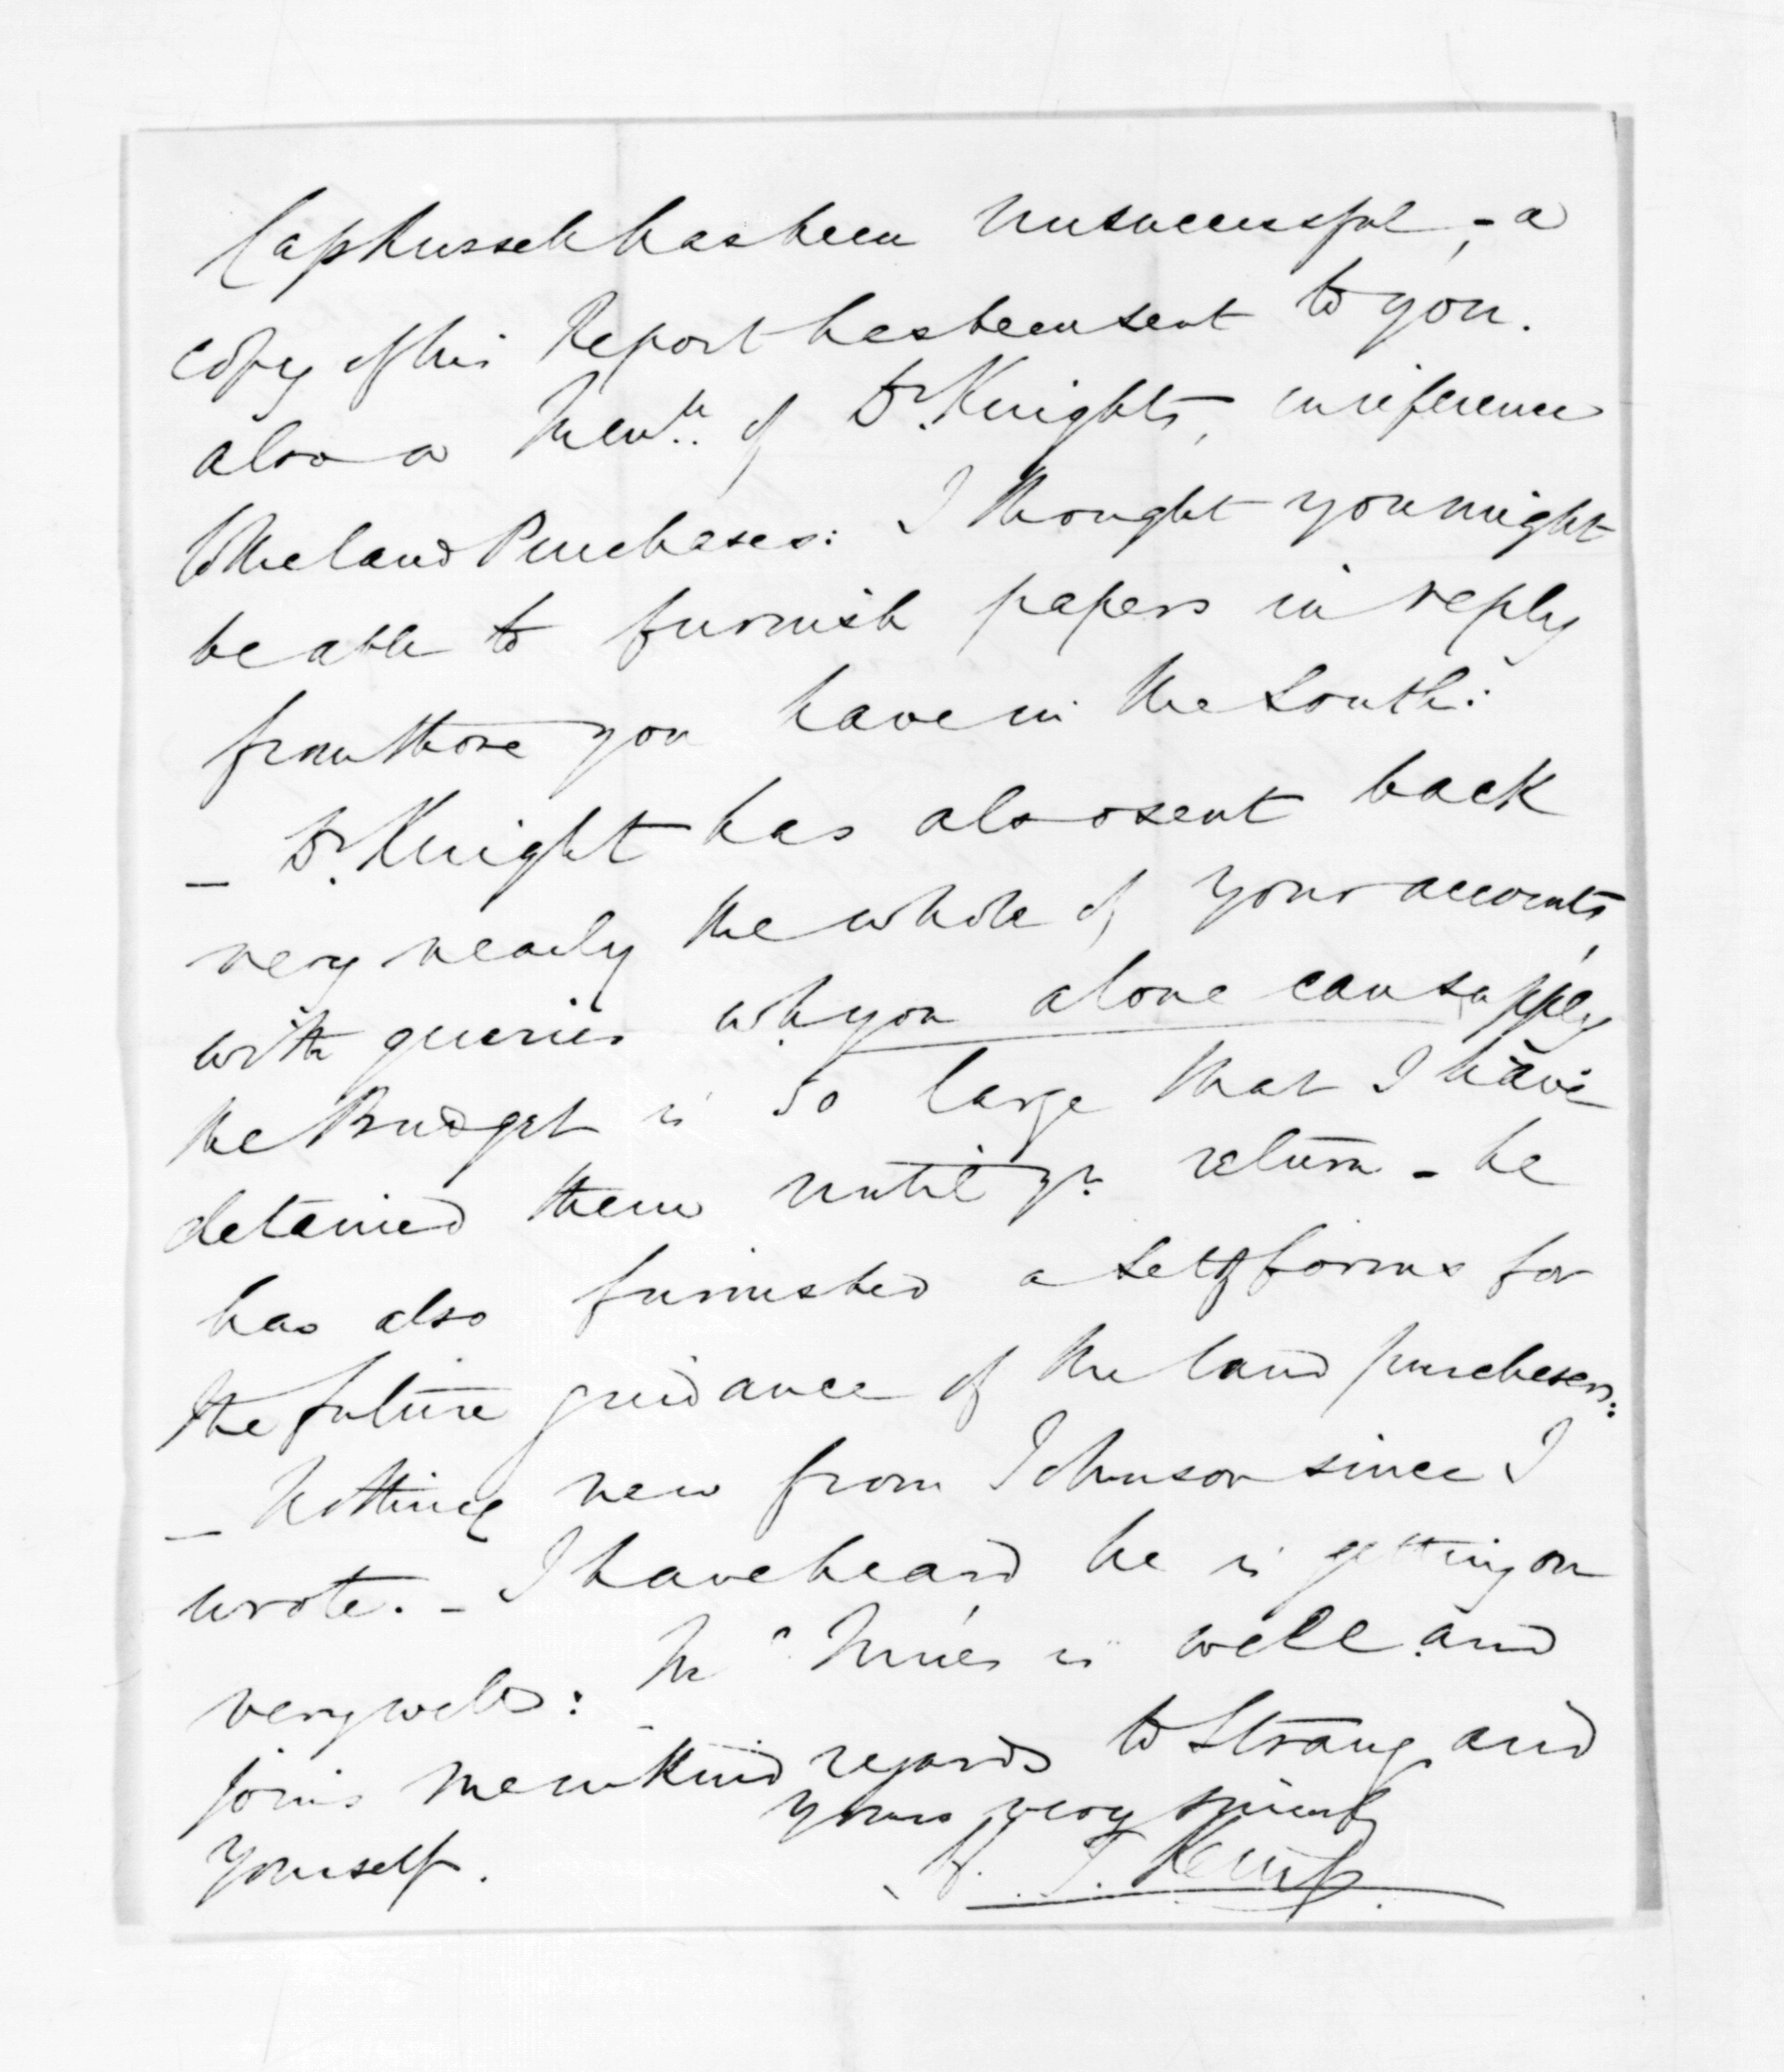 Cap Russell has been unsuccessful, - a
copy of his Report has been sent to you.
also a of Dr. Knights, in reference
to the land Purchases: I thought you might
be able to furnish papers in reply
from those you have in the South:
_ Dr. Knight has also sent back
very nearly the whole of your accounts,
with queries wh. you alone can supply
the Budget is so large that I have
detained them until yr. return - he
has also furnished a sett of forms for
the future guidance of the land purchasers:
_ Nothing new from Johnson since I
wrote. - I have heard he is getting on
very well: is well and
joins me in Kind regards to Strang and
yourself.
yours very sincerely
H. T. Kemp.